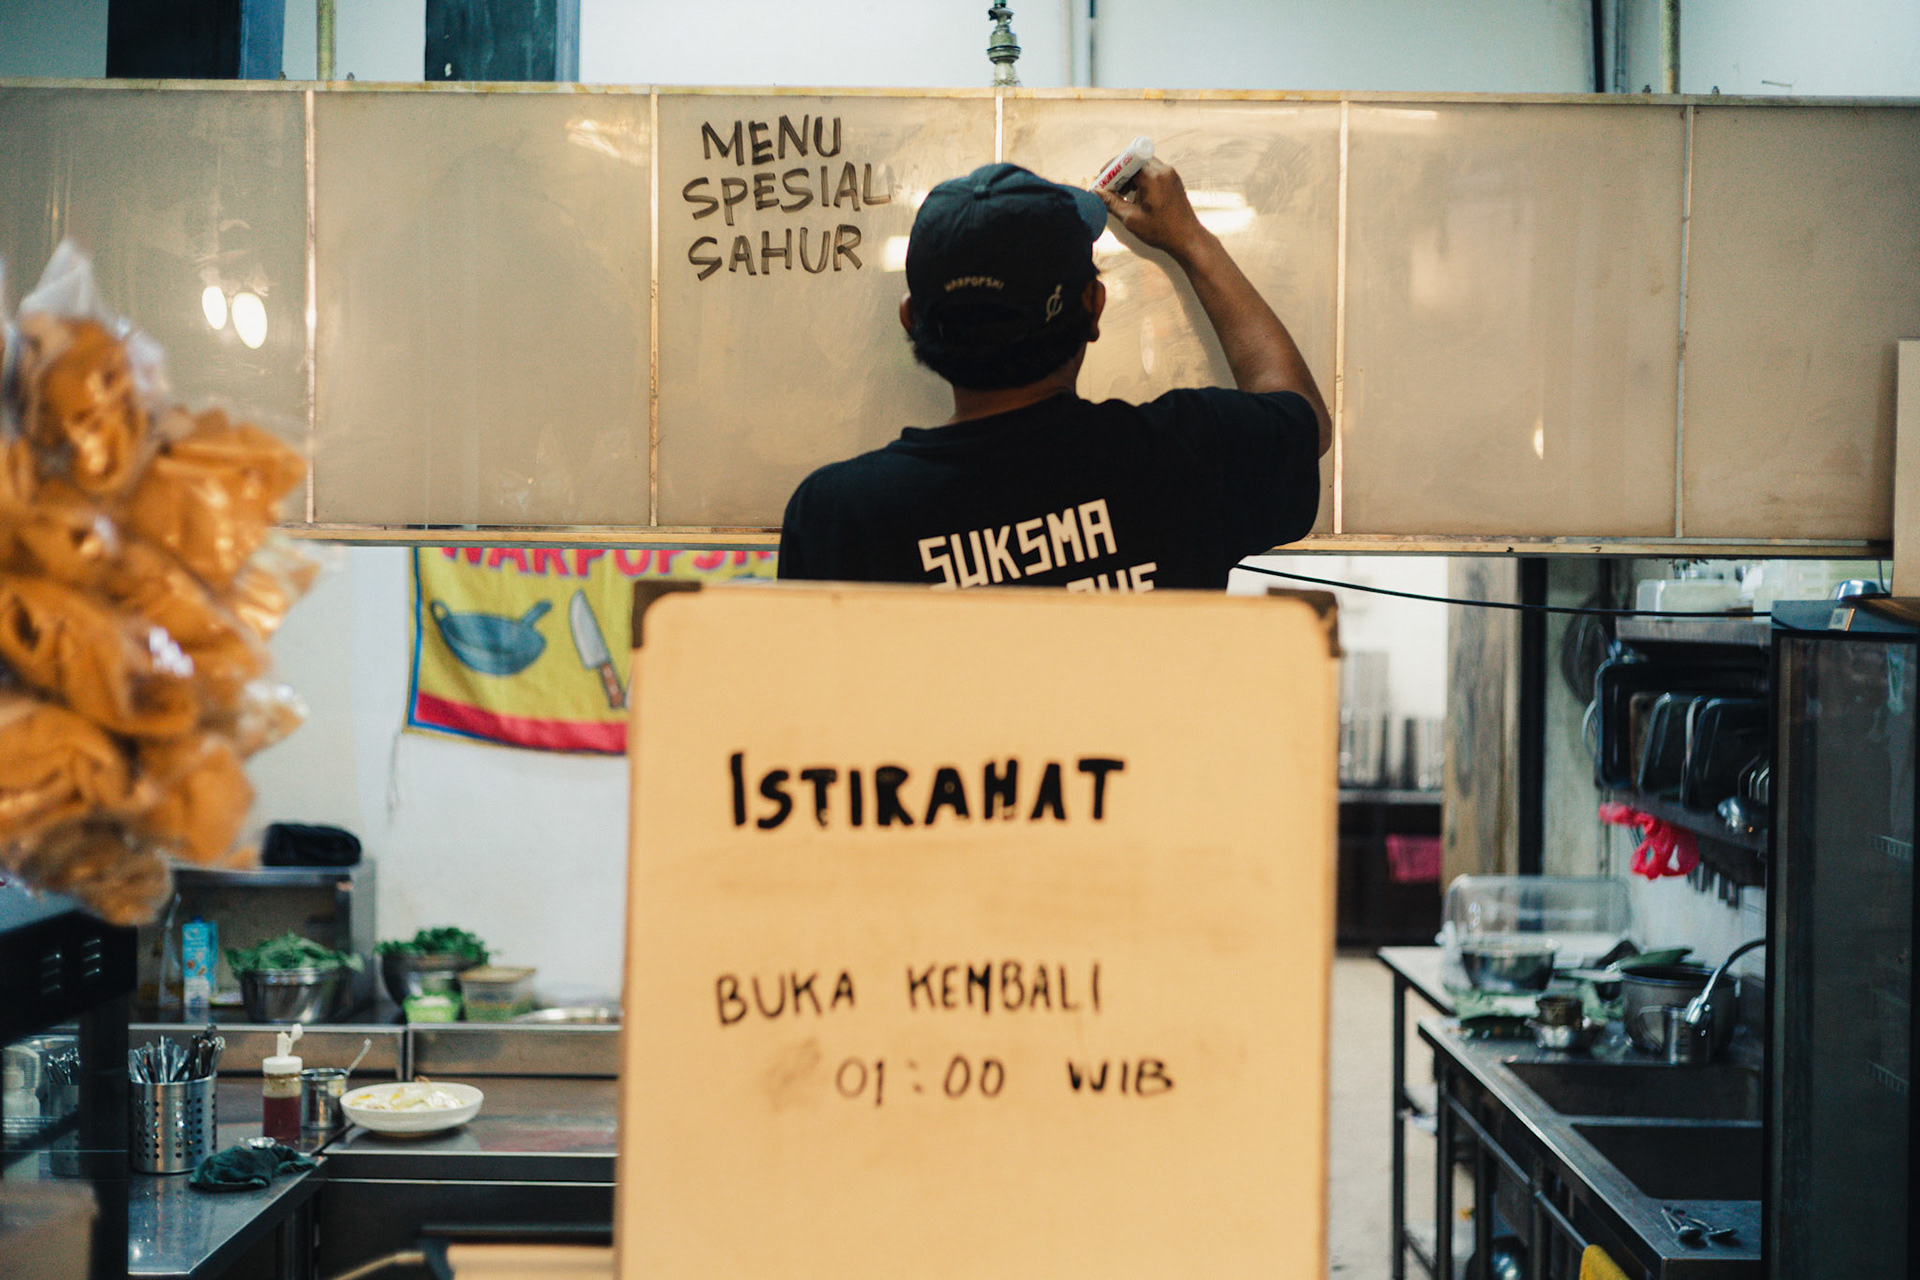 MENU
SPESIAL
SAHUR
WARPOPSKI
SUKSMA
WARPOPSK
ISTIRAHAT
BUKA KEMBALI
01:00 WIB